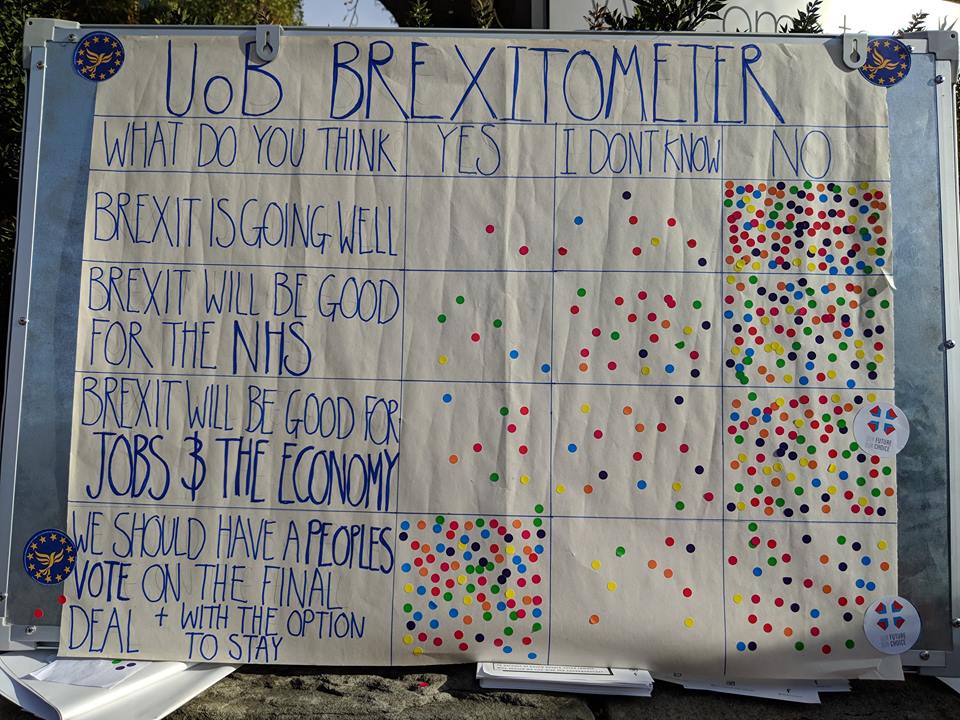 UoB BREXITOMETER
WHAT DO YOU THINK YES I DONT KNOW NO
BREXIT IS GOING WELL
BREXIT WILL BE GOOD
FOR THE NHS
BREXIT WILL BE GOOD FOR
JOBS & THE ECONOMY
WE SHOULD HAVE A PEOPLES
VOTE ON THE FINAL
DEAL + WITH THE OPTION
TO STAY
OUR FUTURE
OUR CHOICE
OUR FUTURE
OUR CHOICE